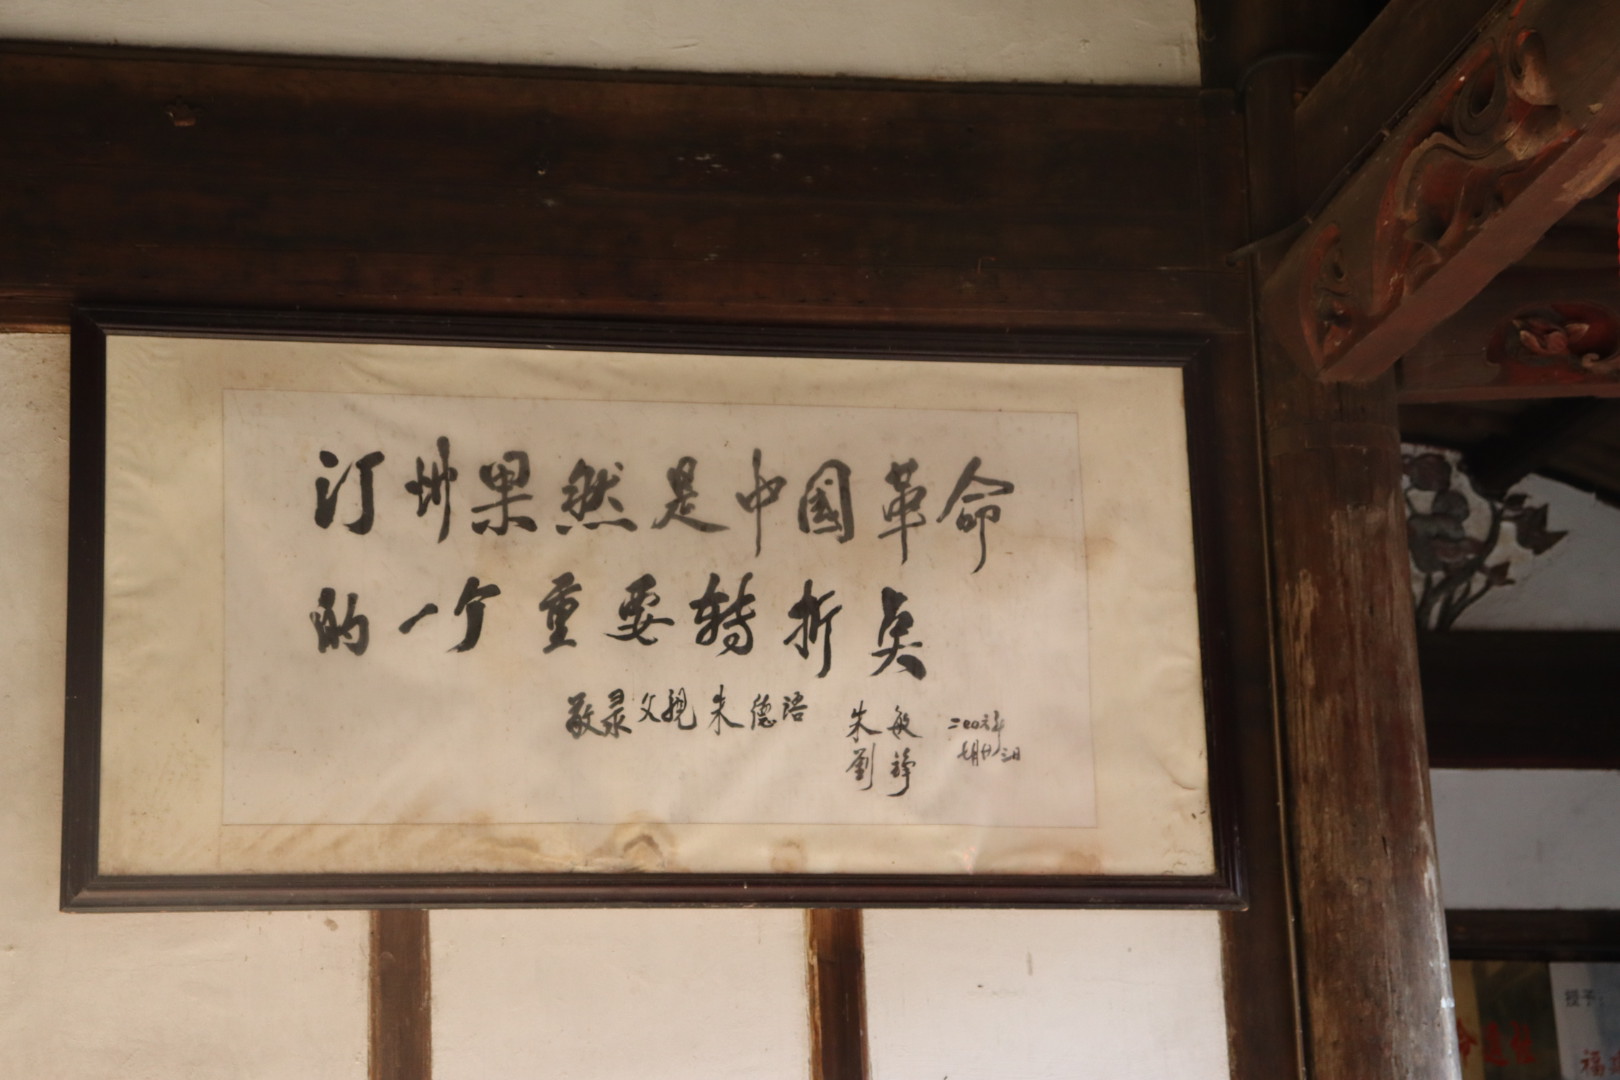 汀州果然是中国革命
的一个重要转折点
敬录父亲朱德语
朱敏
劉铮
二〇〇六年
七月廿三日
授予
福